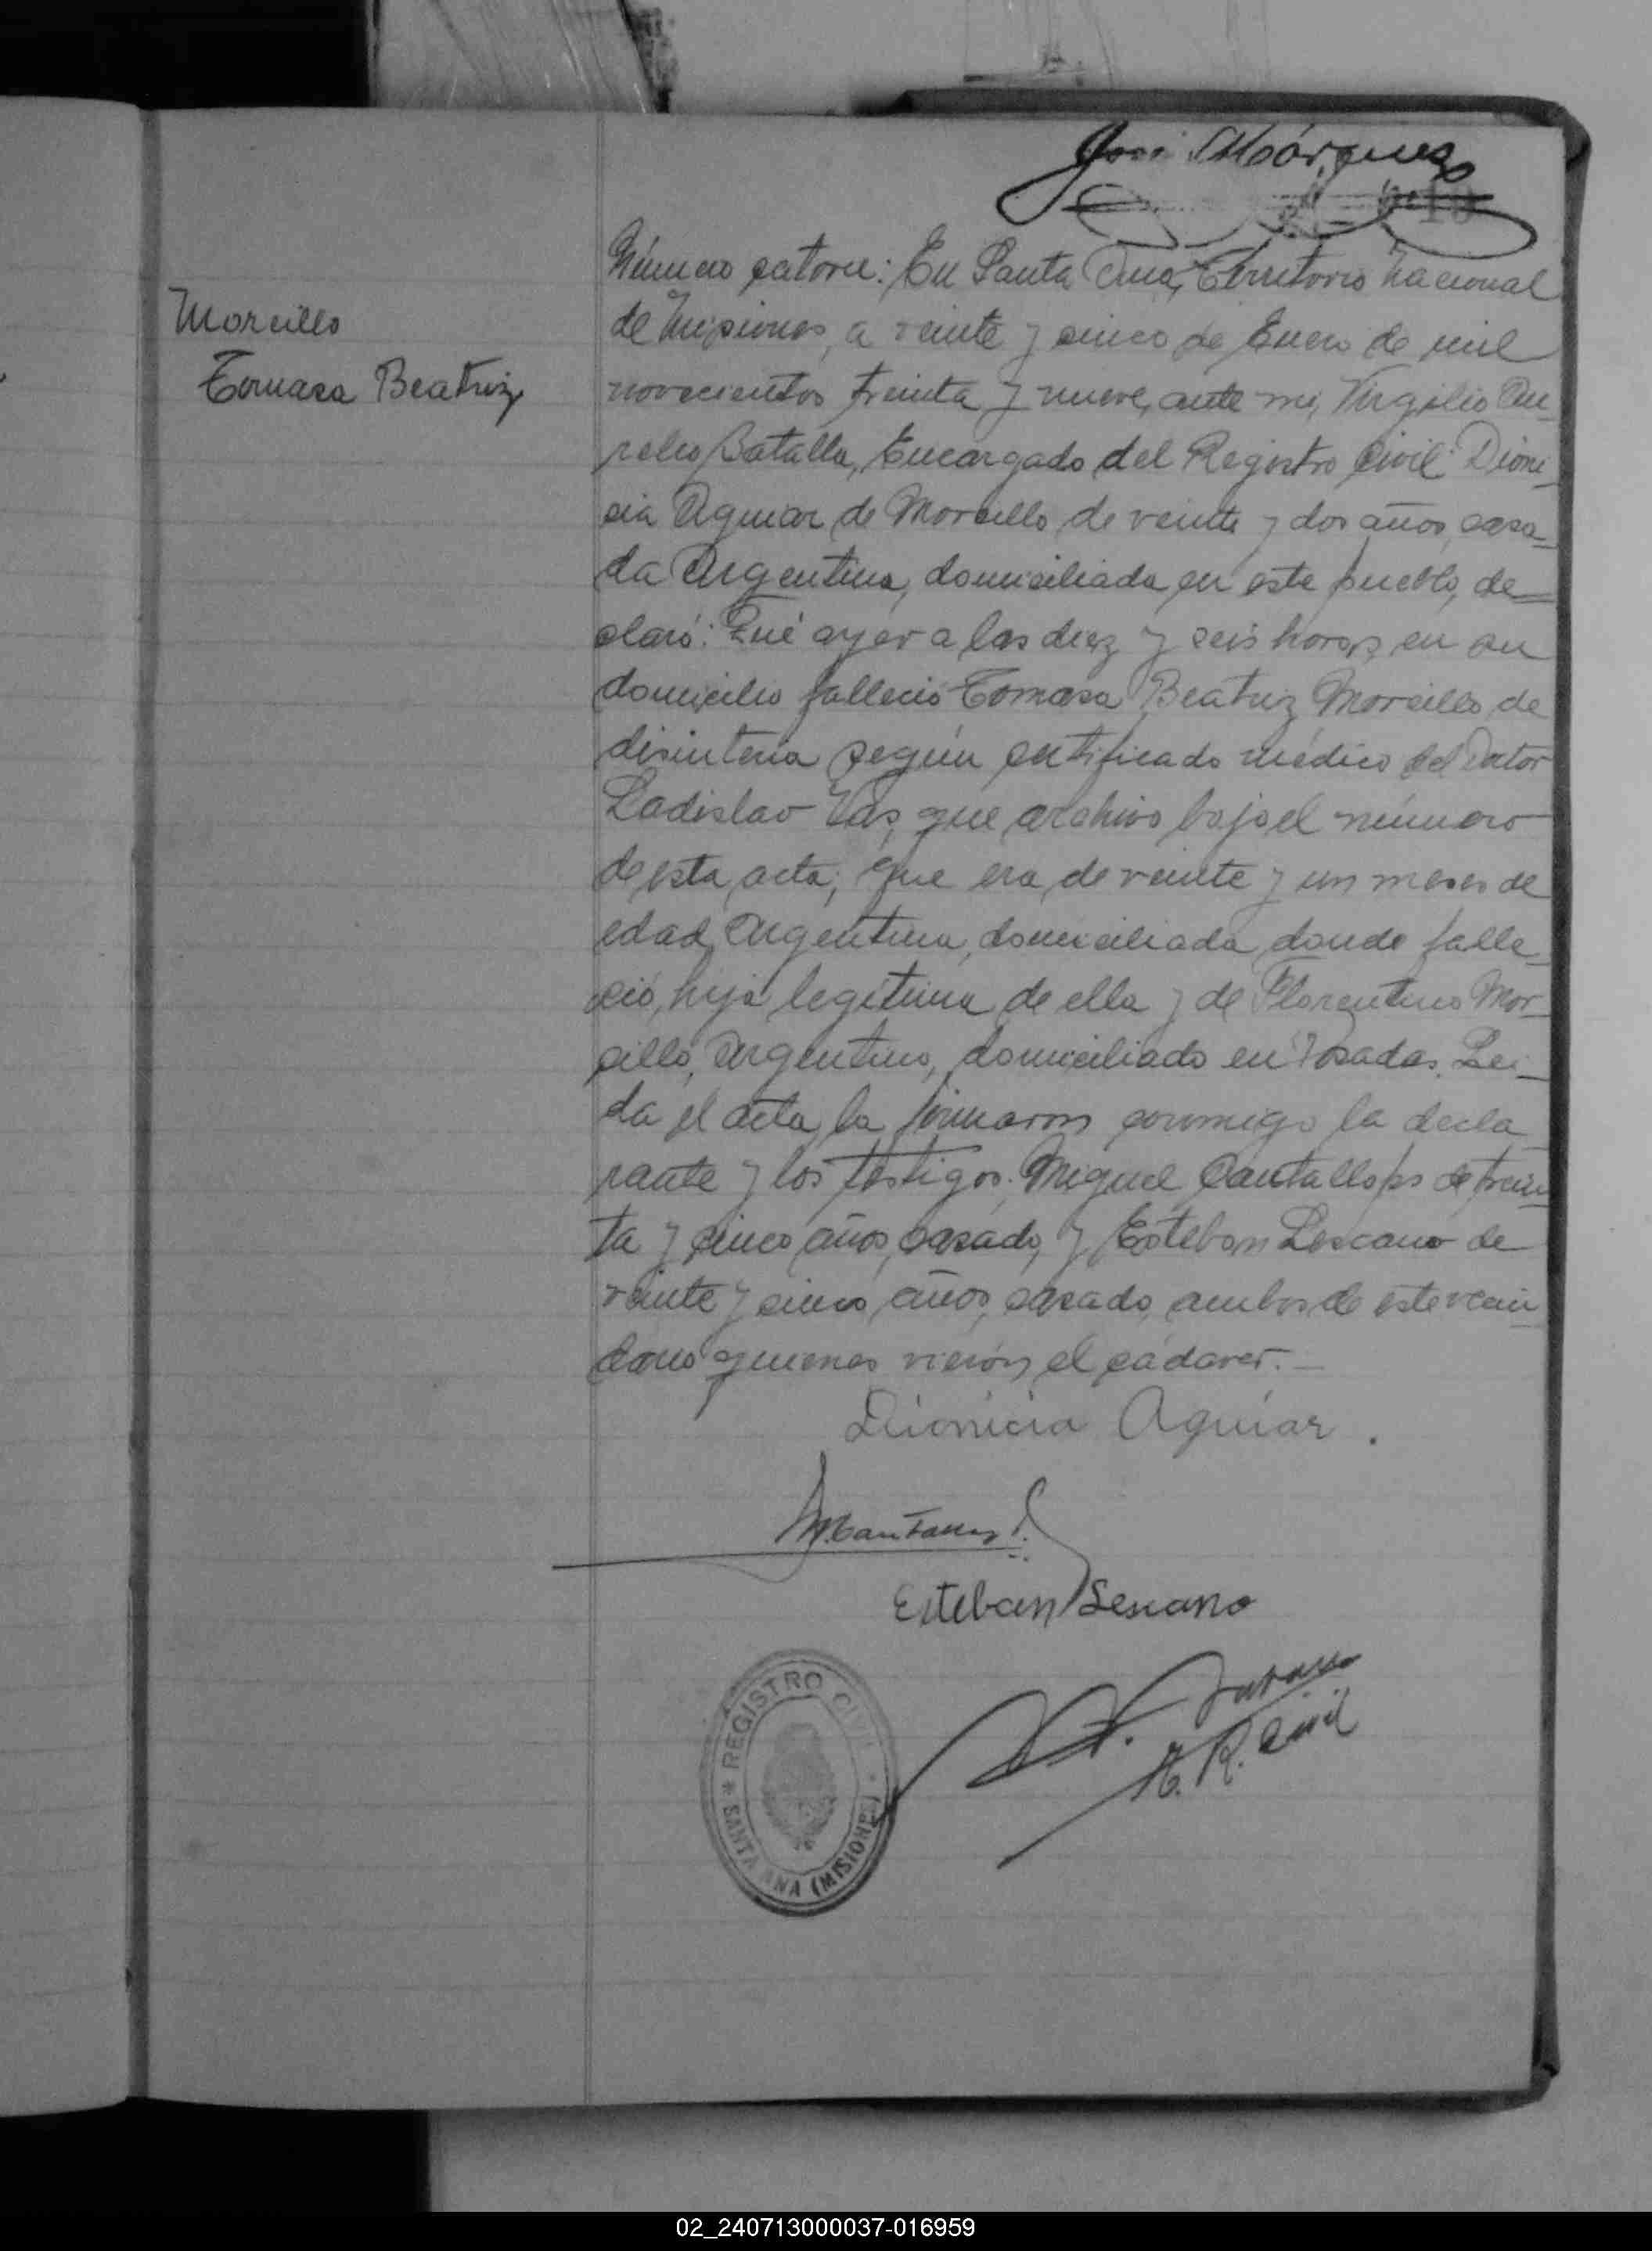 José Márquez
Morcillo
Tomasa Beatriz
Número catorce: En Santa Ana, Territorio Nacional
de Misiones, a veinte y cinco de Enero de mil
novecientos treinta y nueve, ante mi, Virgilio Au-
relio Batalla, Encargado del Registro Civil: Dioni-
cia Aguiar de Morcillo de veinte y dos años, casa-
da Argentina, domiciliada en este pueblo, de-
claró: Qué ayer a las diez y seis horas, en su
domicilio falleció Tomasa Beatriz Morcillo de
disinteria según certificado médico del Doctor
Ladislao Vas, que archivo bajo el número
de esta acta; que era de veinte y un meses de
edad, Argentina, domiciliada donde falle-
ció, hija legítima de ella y de Florentino Mor-
cillo, Argentino, domiciliado en Posadas. Lei-
da el acta, la firmaron conmigo la decla-
rante y los testigos. Miguel Cantallops de trein-
ta y cinco años, casado, y Esteban Lescano de
veinte y cinco años, casado, ambos de este vecin-
dario quienes vieron el cádaver.—
Dionicia Aguiar.
M. Cantallops
Esteban Lescano
E. R. Civil
REGISTRO CIVIL
* SANTA ANA (MISIONES)
02_240713000037-016959